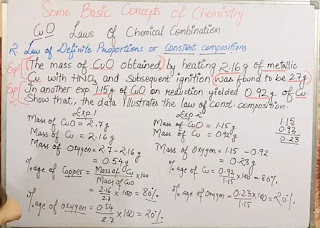 Some Basic Concepts of Chemistry
CuO Laws of Chemical Combination
2 Law of Definite Proportions or Constant compositions
Exp 1 The mass of CuO obtained by heating 2.16 g of metallic
Cu with HNO3 and subsequent ignition was found to be 2.7g
In another exp 1.15g of CuO on reduction yielded 0.92g of Cu
Show that, the data illustrates the law of const. composition.
Exp.1
Mass of CuO = 2.7 g
Mass of Cu = 2.16 g
Mass of oxygen = 2.7 - 2.16 g
= 0.54 g
% age of copper = Mass of Cu / Mass of CuO x 100
= 2.16 / 2.7 x 100 = 80%
% age of oxygen = 0.54 / 2.7 x 100 = 20%
Exp 2
Mass of CuO = 1.15 g
Mass of Cu = 0.92 g
Mass of oxygen = 1.15 - 0.92
= 0.23 g
% age of Cu = 0.92 / 1.15 x 100 = 80%
% age of oxygen = 0.23 / 1.15 x 100 = 20%
1.15
0.92
0.23